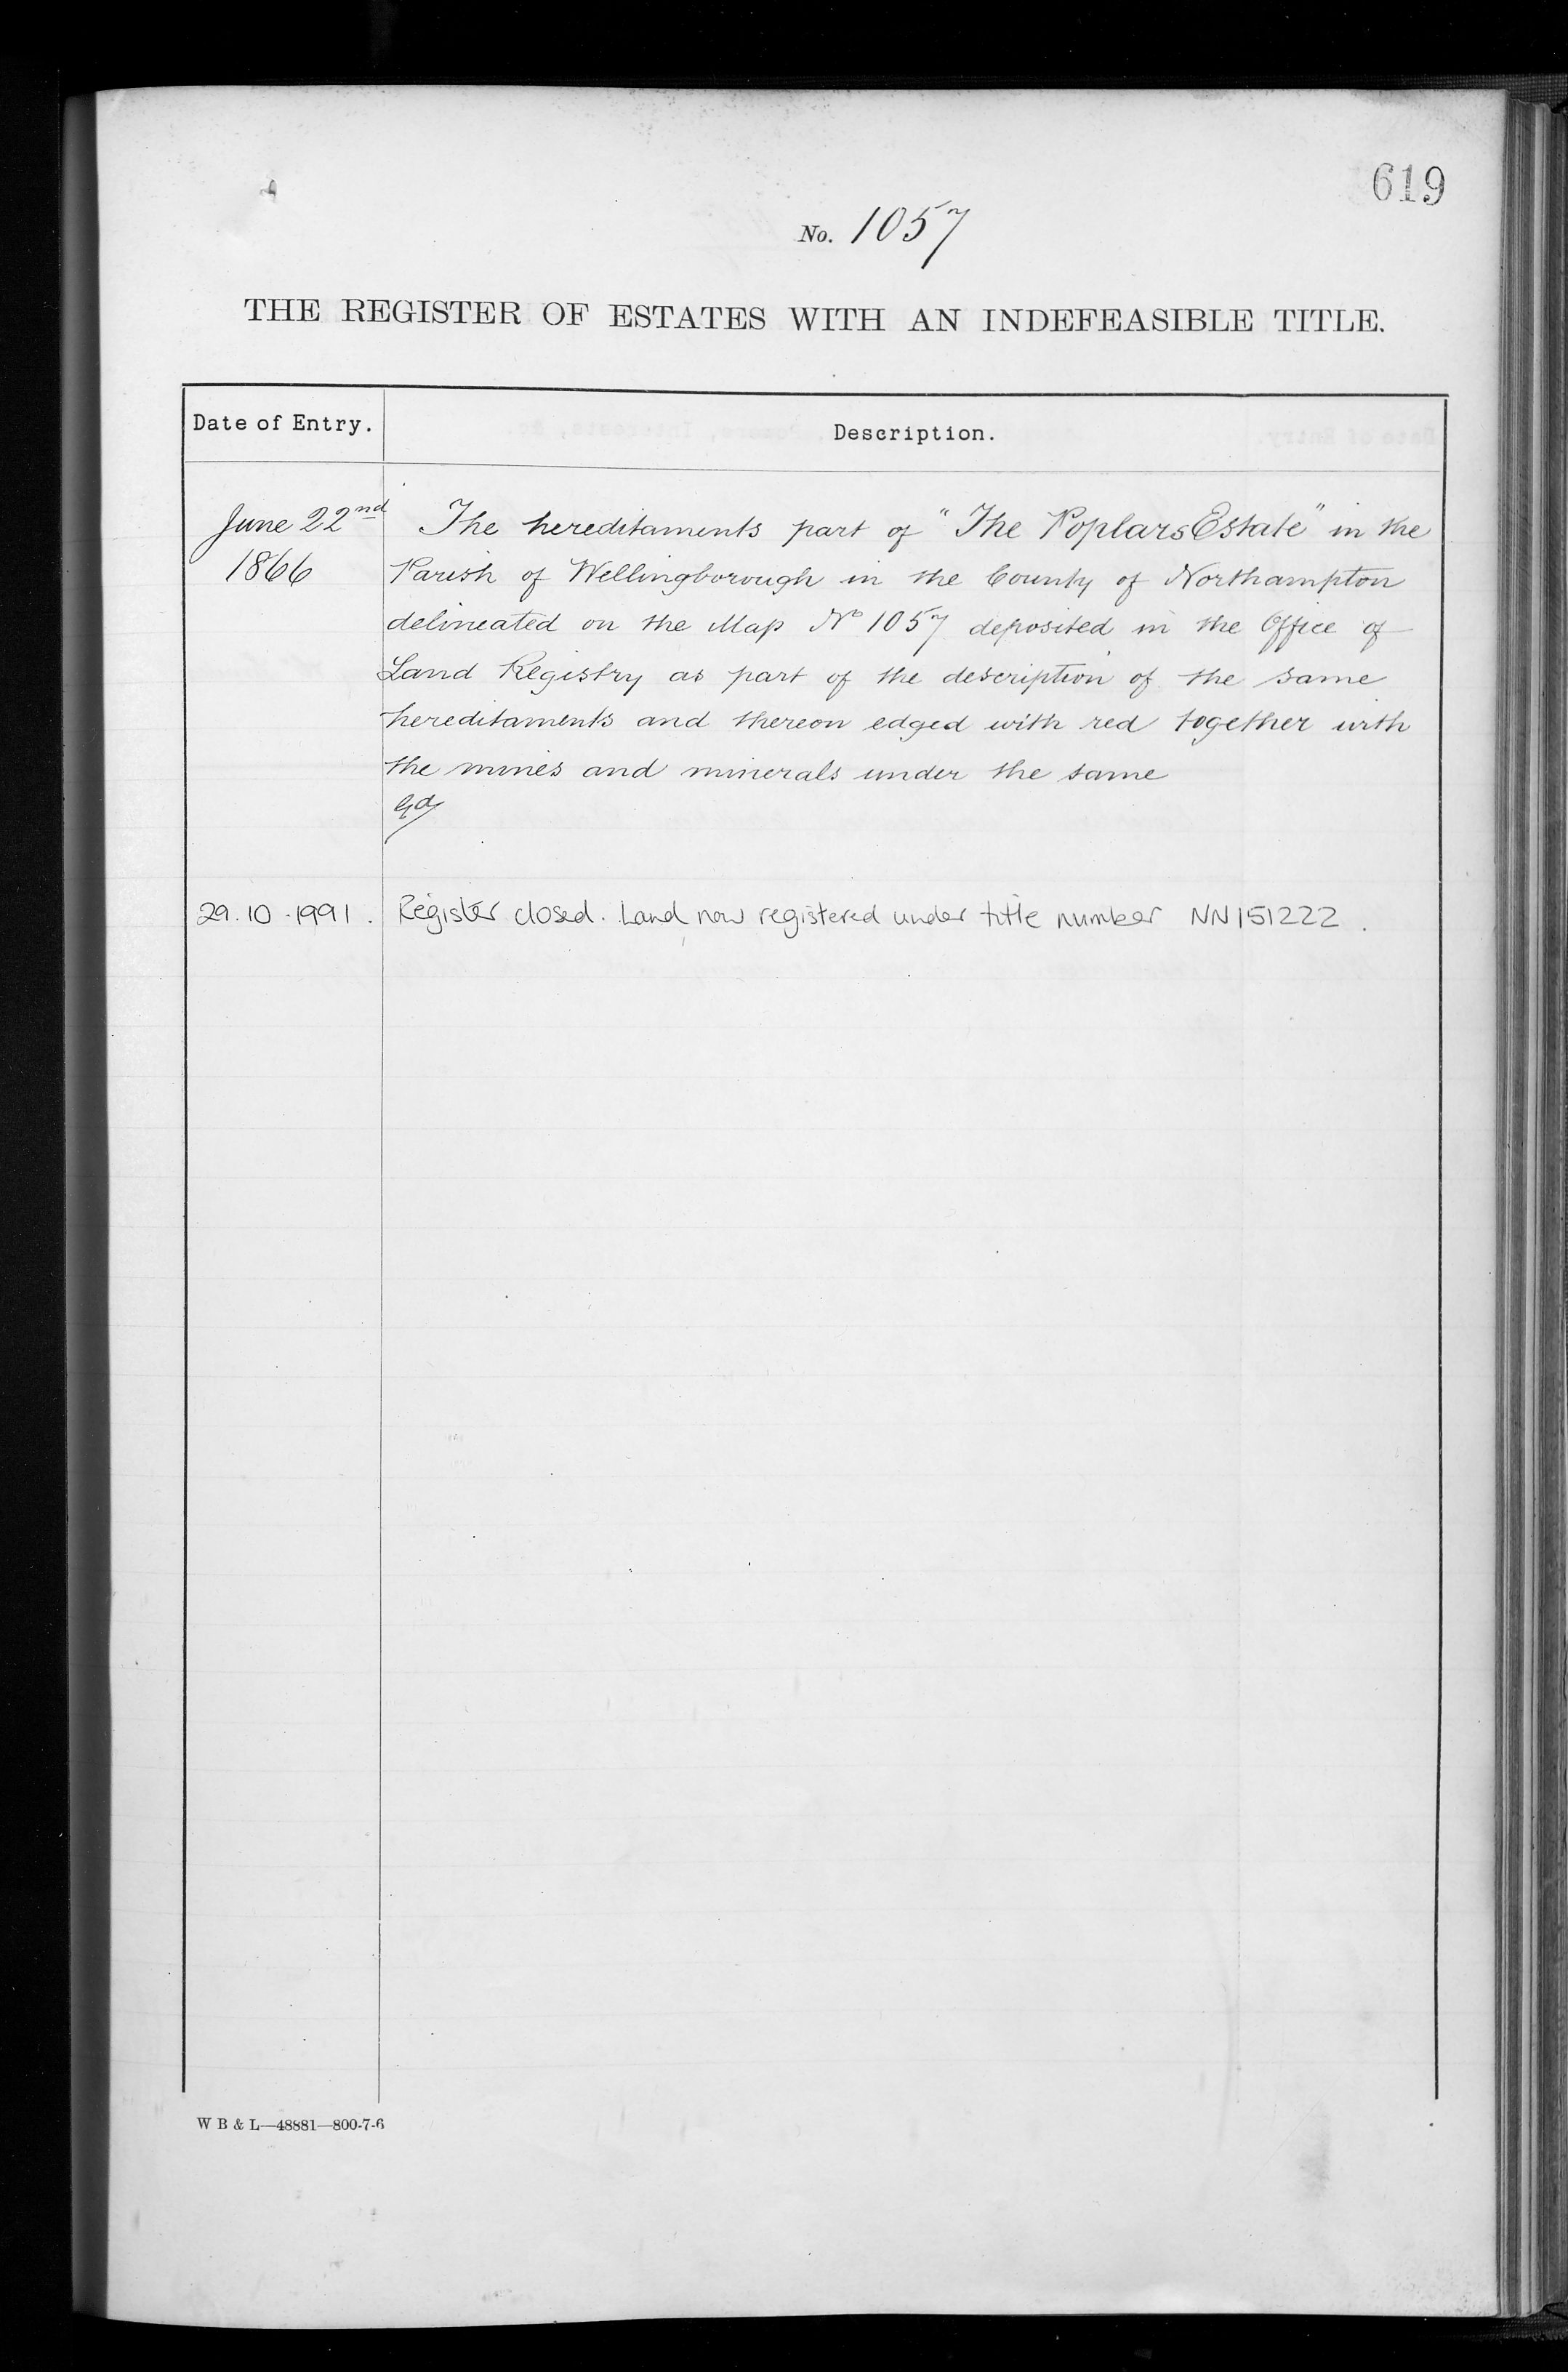 619
No. 1057
THE REGISTER OF ESTATES WITH AN INDEFEASIBLE TITLE.
Date of Entry.
Description.
June 22nd
1866
The hereditaments part of "The Poplars Estate" in the
Parish of Wellingborough in the County of Northampton
delineated on the Map No 1057 deposited in the Office of
Land Registry as part of the description of the same
hereditaments and thereon edged with red together with
the mines and minerals under the same
29.10.1991. Register closed. Land now registered under title number NN151222.
W B & L—48881—800-7-6